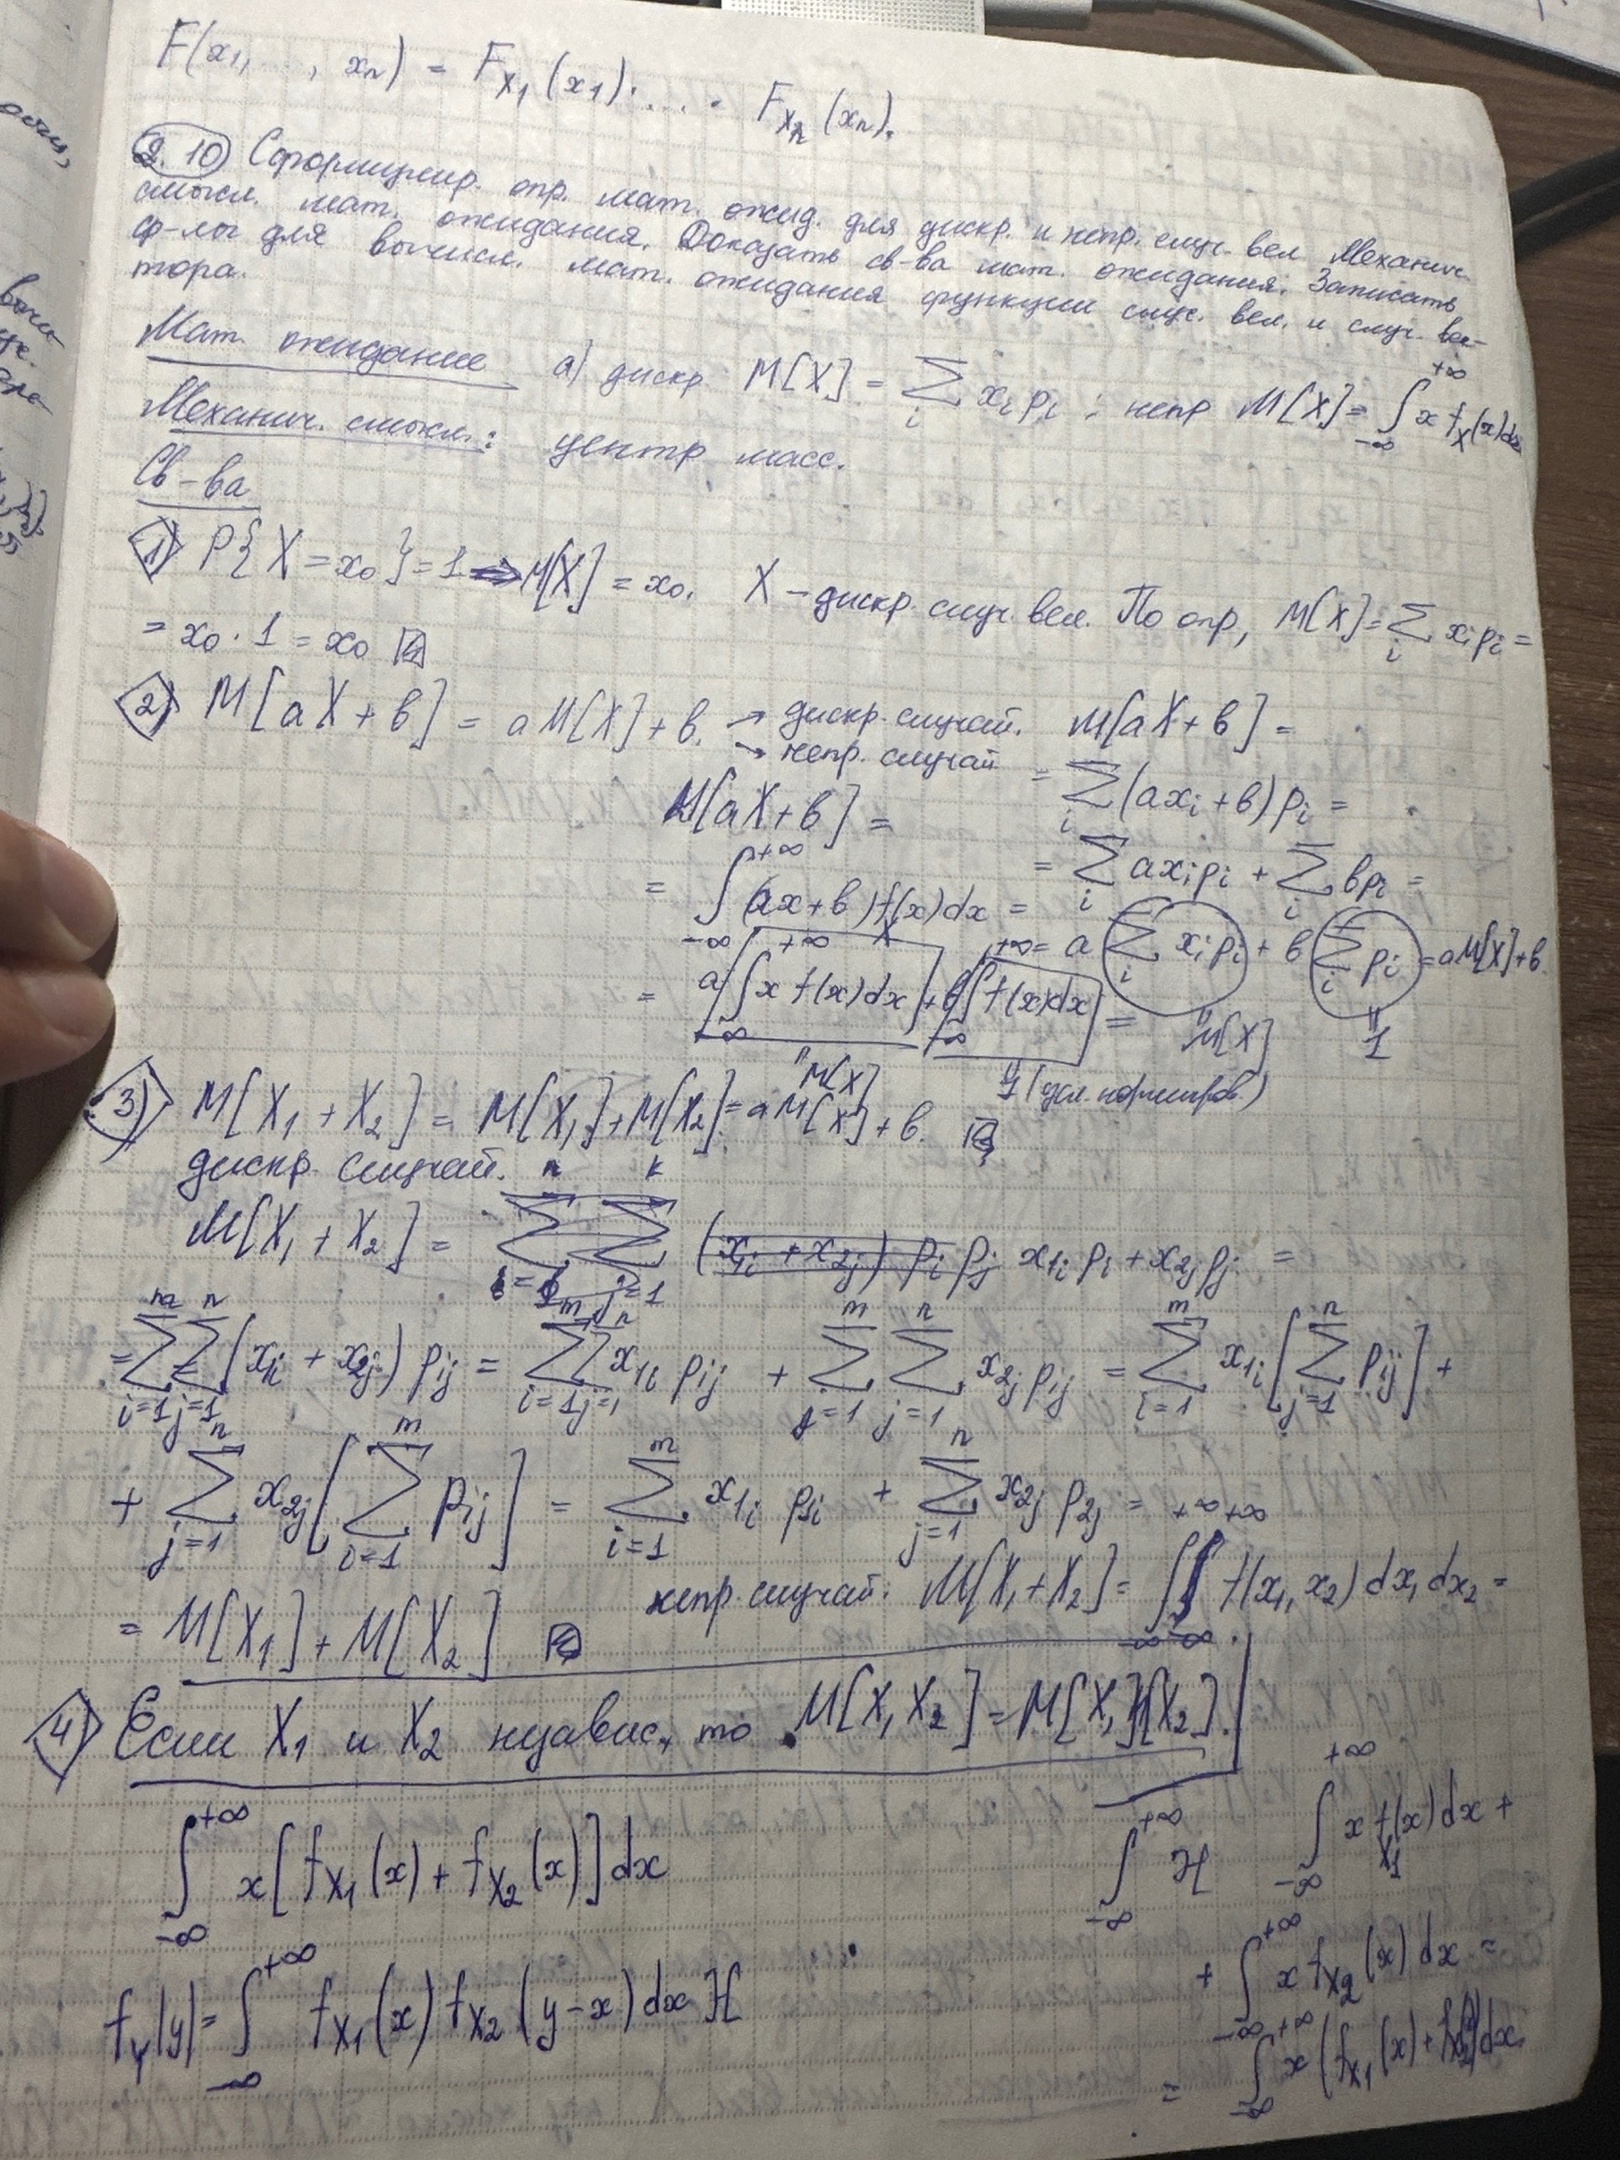 F(x₁, ..., xₙ) = F_X₁(x₁) · ... · F_Xₙ(xₙ).
2.10 Сформулир. опр. мат. ожид. для дискр. и непр. случ. вел. Механич.
смысл. мат. ожидания. Доказать св-ва мат. ожидания. Записать
ф-лы для вычисл. мат. ожидания функции случ. вел. и случ. век-
тора.
Мат. ожидание а) дискр M[X] = ∑_i x_i p_i ; непр M[X] = ∫_{-∞}^{+∞} x f_X(x)dx
Механич. смысл.: центр масс.
Св-ва
1) P{X = x₀} = 1 => M[X] = x₀. X – дискр. случ. вел. По опр, M[X] = ∑_i x_i p_i =
= x₀ · 1 = x₀
2) M[aX + b] = aM[X] + b. → дискр. случай. M[aX + b] =
→ непр. случай = ∑_i (ax_i + b) p_i =
M[aX + b] = = ∑_i ax_i p_i + ∑_i bp_i =
= ∫_{-∞}^{+∞} (ax + b) f_X(x)dx = = a ∑_i x_i p_i + b ∑_i p_i = aM[X] + b
= a ∫_{-∞}^{+∞} x f(x)dx + b ∫ f(x)dx = " M[X] " 1
" M[X] 1 (усл. нормиров.)
3) M[X₁ + X₂] = M[X₁] + M[X₂] = aM[X] + b.
дискр. случай.
M[X₁ + X₂] = x₁ᵢ pᵢ + x₂ⱼ pⱼ =
= ∑_{i=1}^{m} ∑_{j=1}^{n} (x₁ᵢ + x₂ⱼ) pᵢⱼ = ∑_{i=1}^{m} ∑_{j=1}^{n} x₁ᵢ pᵢⱼ + ∑_{j=1}^{m} ∑_{j=1}^{n} x₂ⱼ pᵢⱼ = ∑_{i=1}^{m} x₁ᵢ [∑_{j=1}^{n} pᵢⱼ] +
+ ∑_{j=1}^{n} x₂ⱼ [∑_{i=1}^{m} pᵢⱼ] = ∑_{i=1}^{m} x₁ᵢ p₁ᵢ + ∑_{j=1}^{n} x₂ⱼ p₂ⱼ =
= M[X₁] + M[X₂] непр. случай: M[X₁ + X₂] = ∫_{-∞}^{+∞} ∫_{-∞}^{+∞} f(x₁, x₂) dx₁ dx₂ =
4) Если X₁ и X₂ независ, то M[X₁X₂] = M[X₁]M[X₂].
∫_{-∞}^{+∞} x [f_X₁(x) + f_X₂(x)] dx ∫_{-∞}^{+∞} ∫_{-∞}^{+∞} x f_X₁(x) dx +
+ ∫_{-∞}^{+∞} x f_X₂(x) dx =
f_Y(y) = ∫_{-∞}^{+∞} f_X₁(x) f_X₂(y-x) dx
= ∫_{-∞}^{+∞} x (f_X₁(x) + f_X₂(x)) dx.